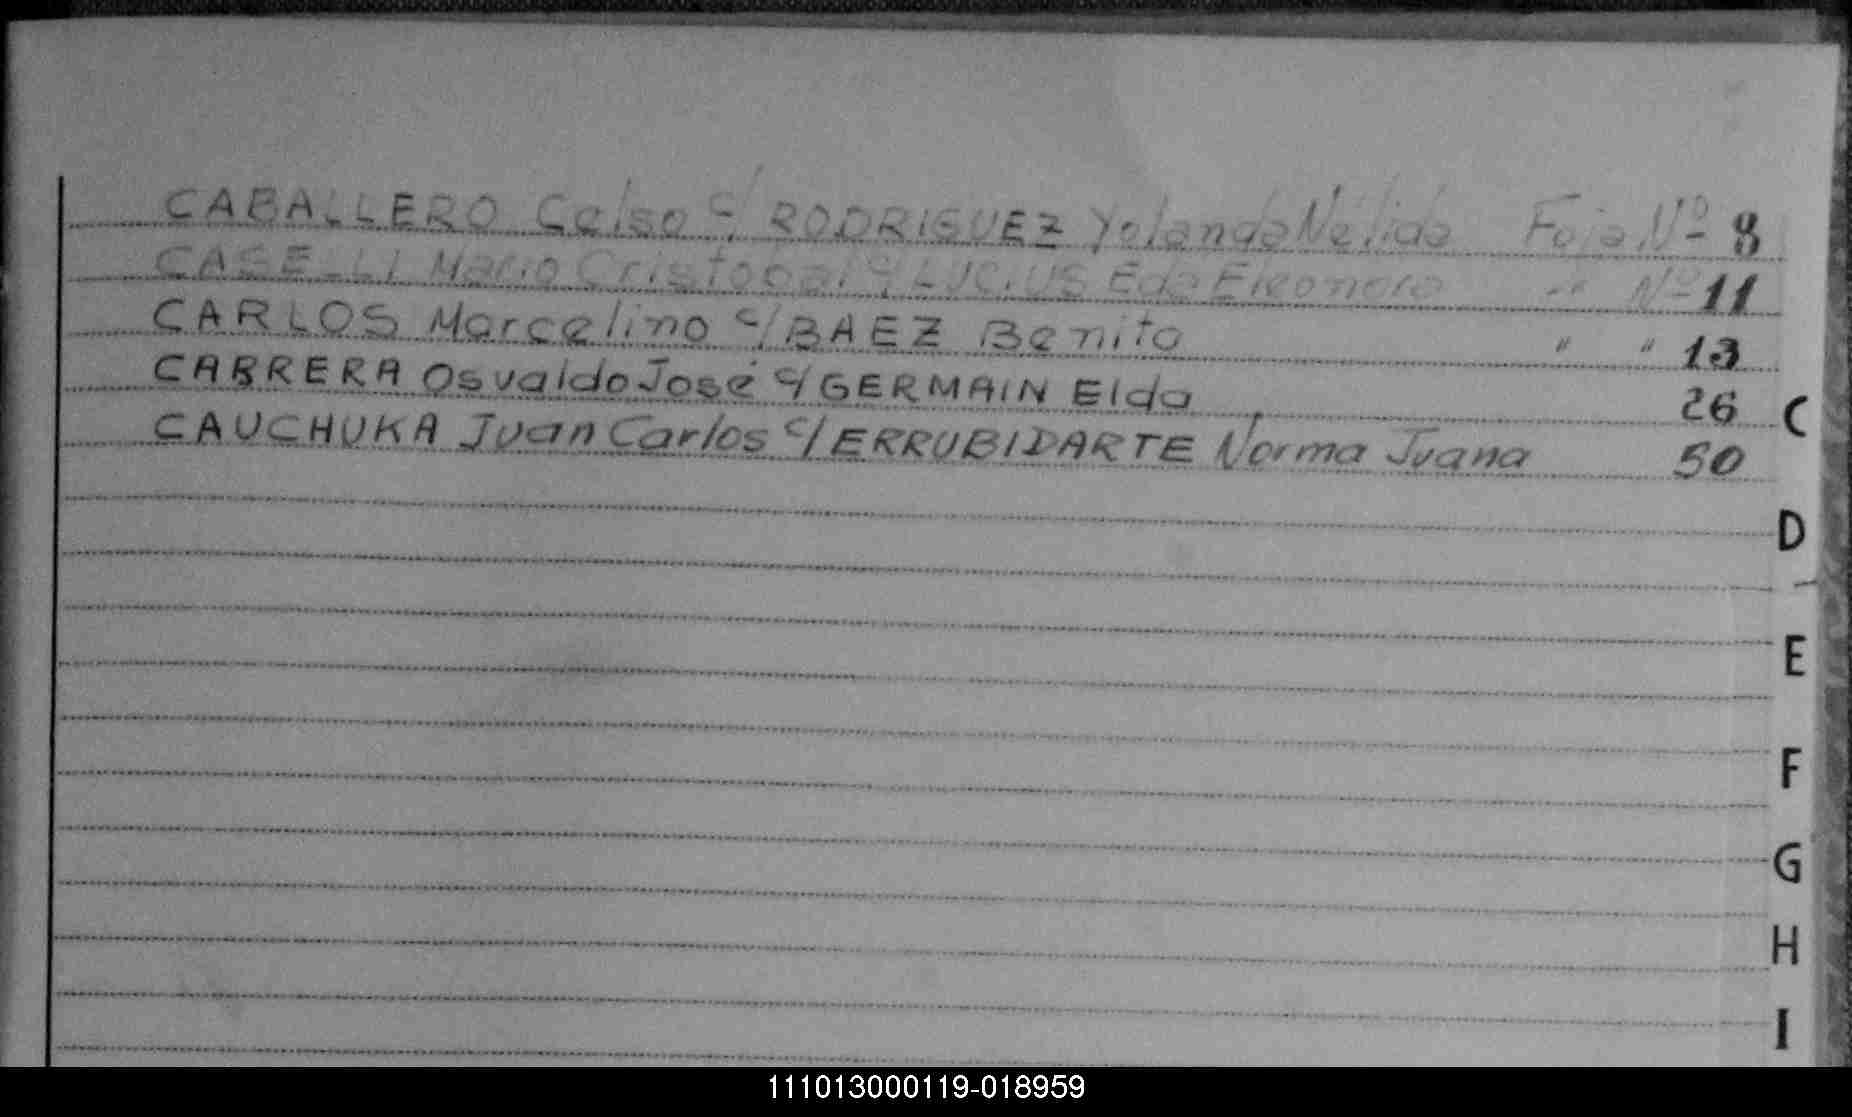 CABALLERO Celso c/ RODRIGUEZ Yolanda Nélida Foja Nº 8
CASELLI Mario Cristobal c/ LUCIUS Eda Eleonora " Nº 11
CARLOS Marcelino c/ BAEZ Benita " " 13
CABRERA Osvaldo José c/ GERMAIN Elda 26
C
CAUCHUKA Juan Carlos c/ ERRUBIDARTE Norma Juana 50
D
E
F
G
H
I
111013000119-018959